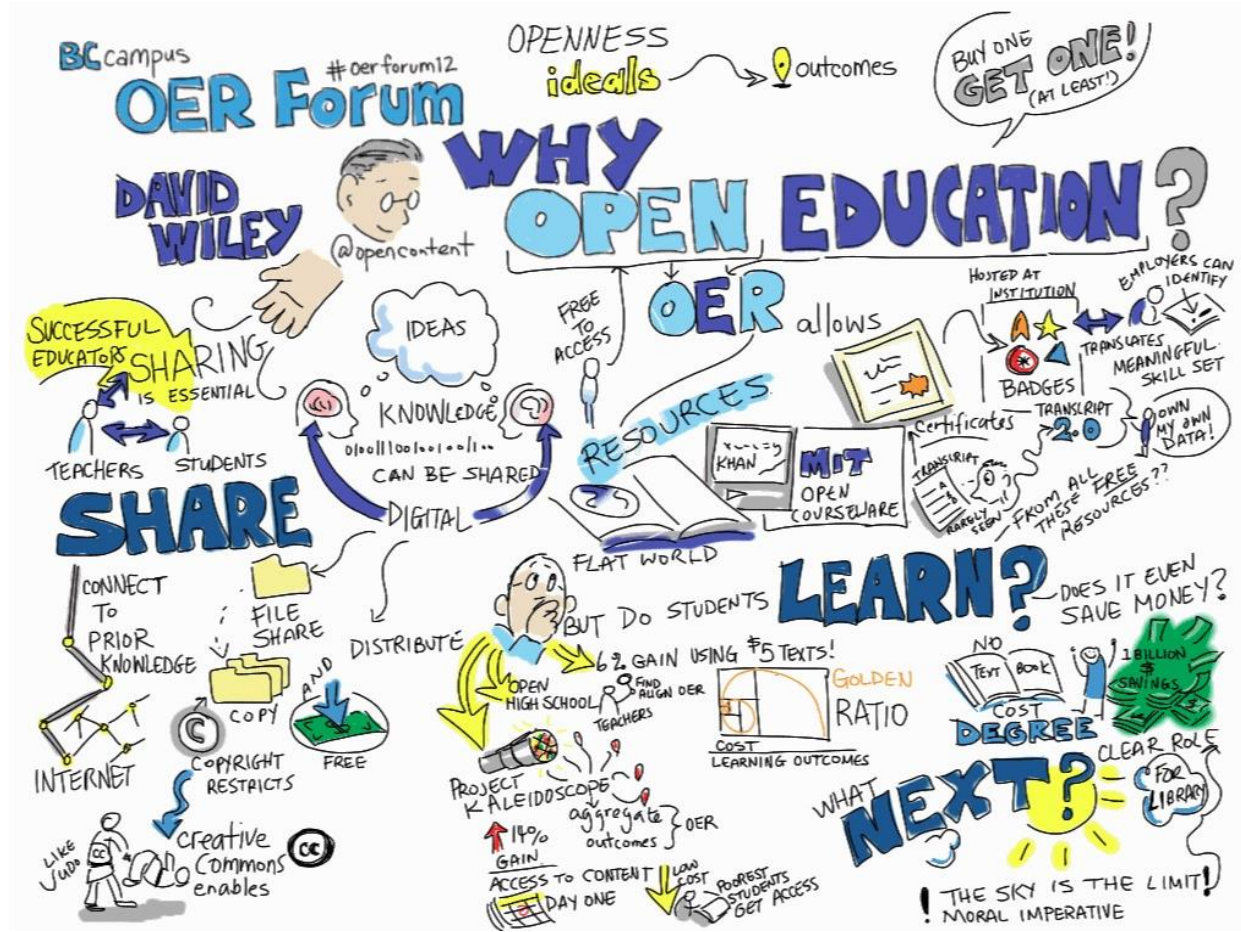 BCcampus
#oerforum12
OER Forum
OPENNESS
ideals
outcomes
BUY ONE
GET ONE!
(AT LEAST!)
DAVID
WILEY
@opencontent
WHY
OPEN EDUCATION?
OER
allows
FREE
TO
ACCESS
SUCCESSFUL
EDUCATORS
SHARING
IS ESSENTIAL
TEACHERS
STUDENTS
IDEAS
KNOWLEDGE
CAN BE SHARED
DIGITAL
RESOURCES
KHAN
MIT
OPEN
COURSEWARE
FLAT WORLD
Certificates
HOSTED AT
INSTITUTION
BADGES
TRANSLATES
EMPLOYERS CAN
IDENTIFY
MEANINGFUL
SKILL SET
TRANSCRIPT
2.0
OWN
MY OWN
DATA!
TRANSCRIPT
RARELY
SEEN
FROM ALL
THESE FREE
RESOURCES??
SHARE
CONNECT
TO
PRIOR
KNOWLEDGE
INTERNET
FILE
SHARE
COPY
C
COPYRIGHT
RESTRICTS
DISTRIBUTE
AND
FREE
LIKE
JUDO
CC
creative
commons
enables
CC
BUT DO STUDENTS
LEARN?
DOES IT EVEN
SAVE MONEY?
6% GAIN USING $5 TEXTS!
OPEN
HIGH SCHOOL
FIND
ALIGN OER
TEACHERS
GOLDEN
RATIO
COST
LEARNING OUTCOMES
PROJECT
KALEIDOSCOPE
aggregate
outcomes
OER
14%
GAIN
ACCESS TO CONTENT
DAY ONE
LOW
COST
POOREST
STUDENTS
GET ACCESS
NO
TEXT BOOK
COST
DEGREE
1 BILLION
$
SAVINGS
WHAT
NEXT?
CLEAR ROLE
FOR
LIBRARY
! THE SKY IS THE LIMIT!
MORAL IMPERATIVE